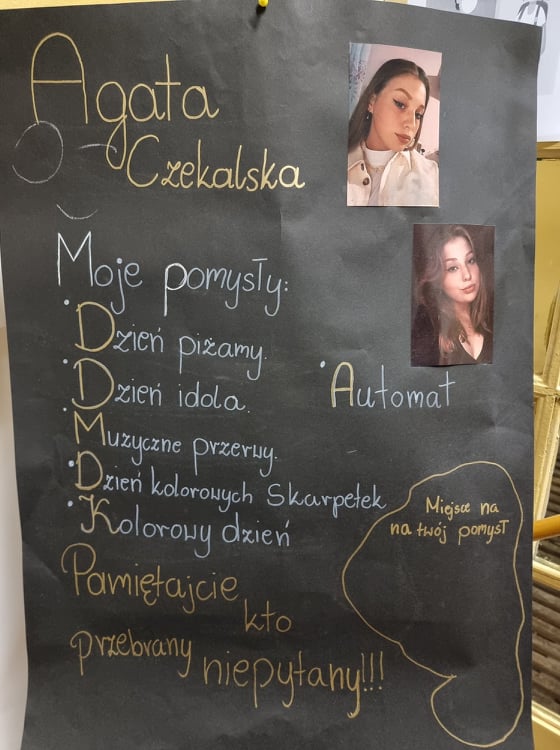 Agata
Czekalska
Moje pomysły:
• Dzień piżamy.
• Dzień idola.
• Automat
• Muzyczne przerwy.
• Dzień kolorowych Skarpetek
• Kolorowy dzień
Miejsce na
na twój pomysł
Pamiętajcie
kto
przebrany niepytany!!!